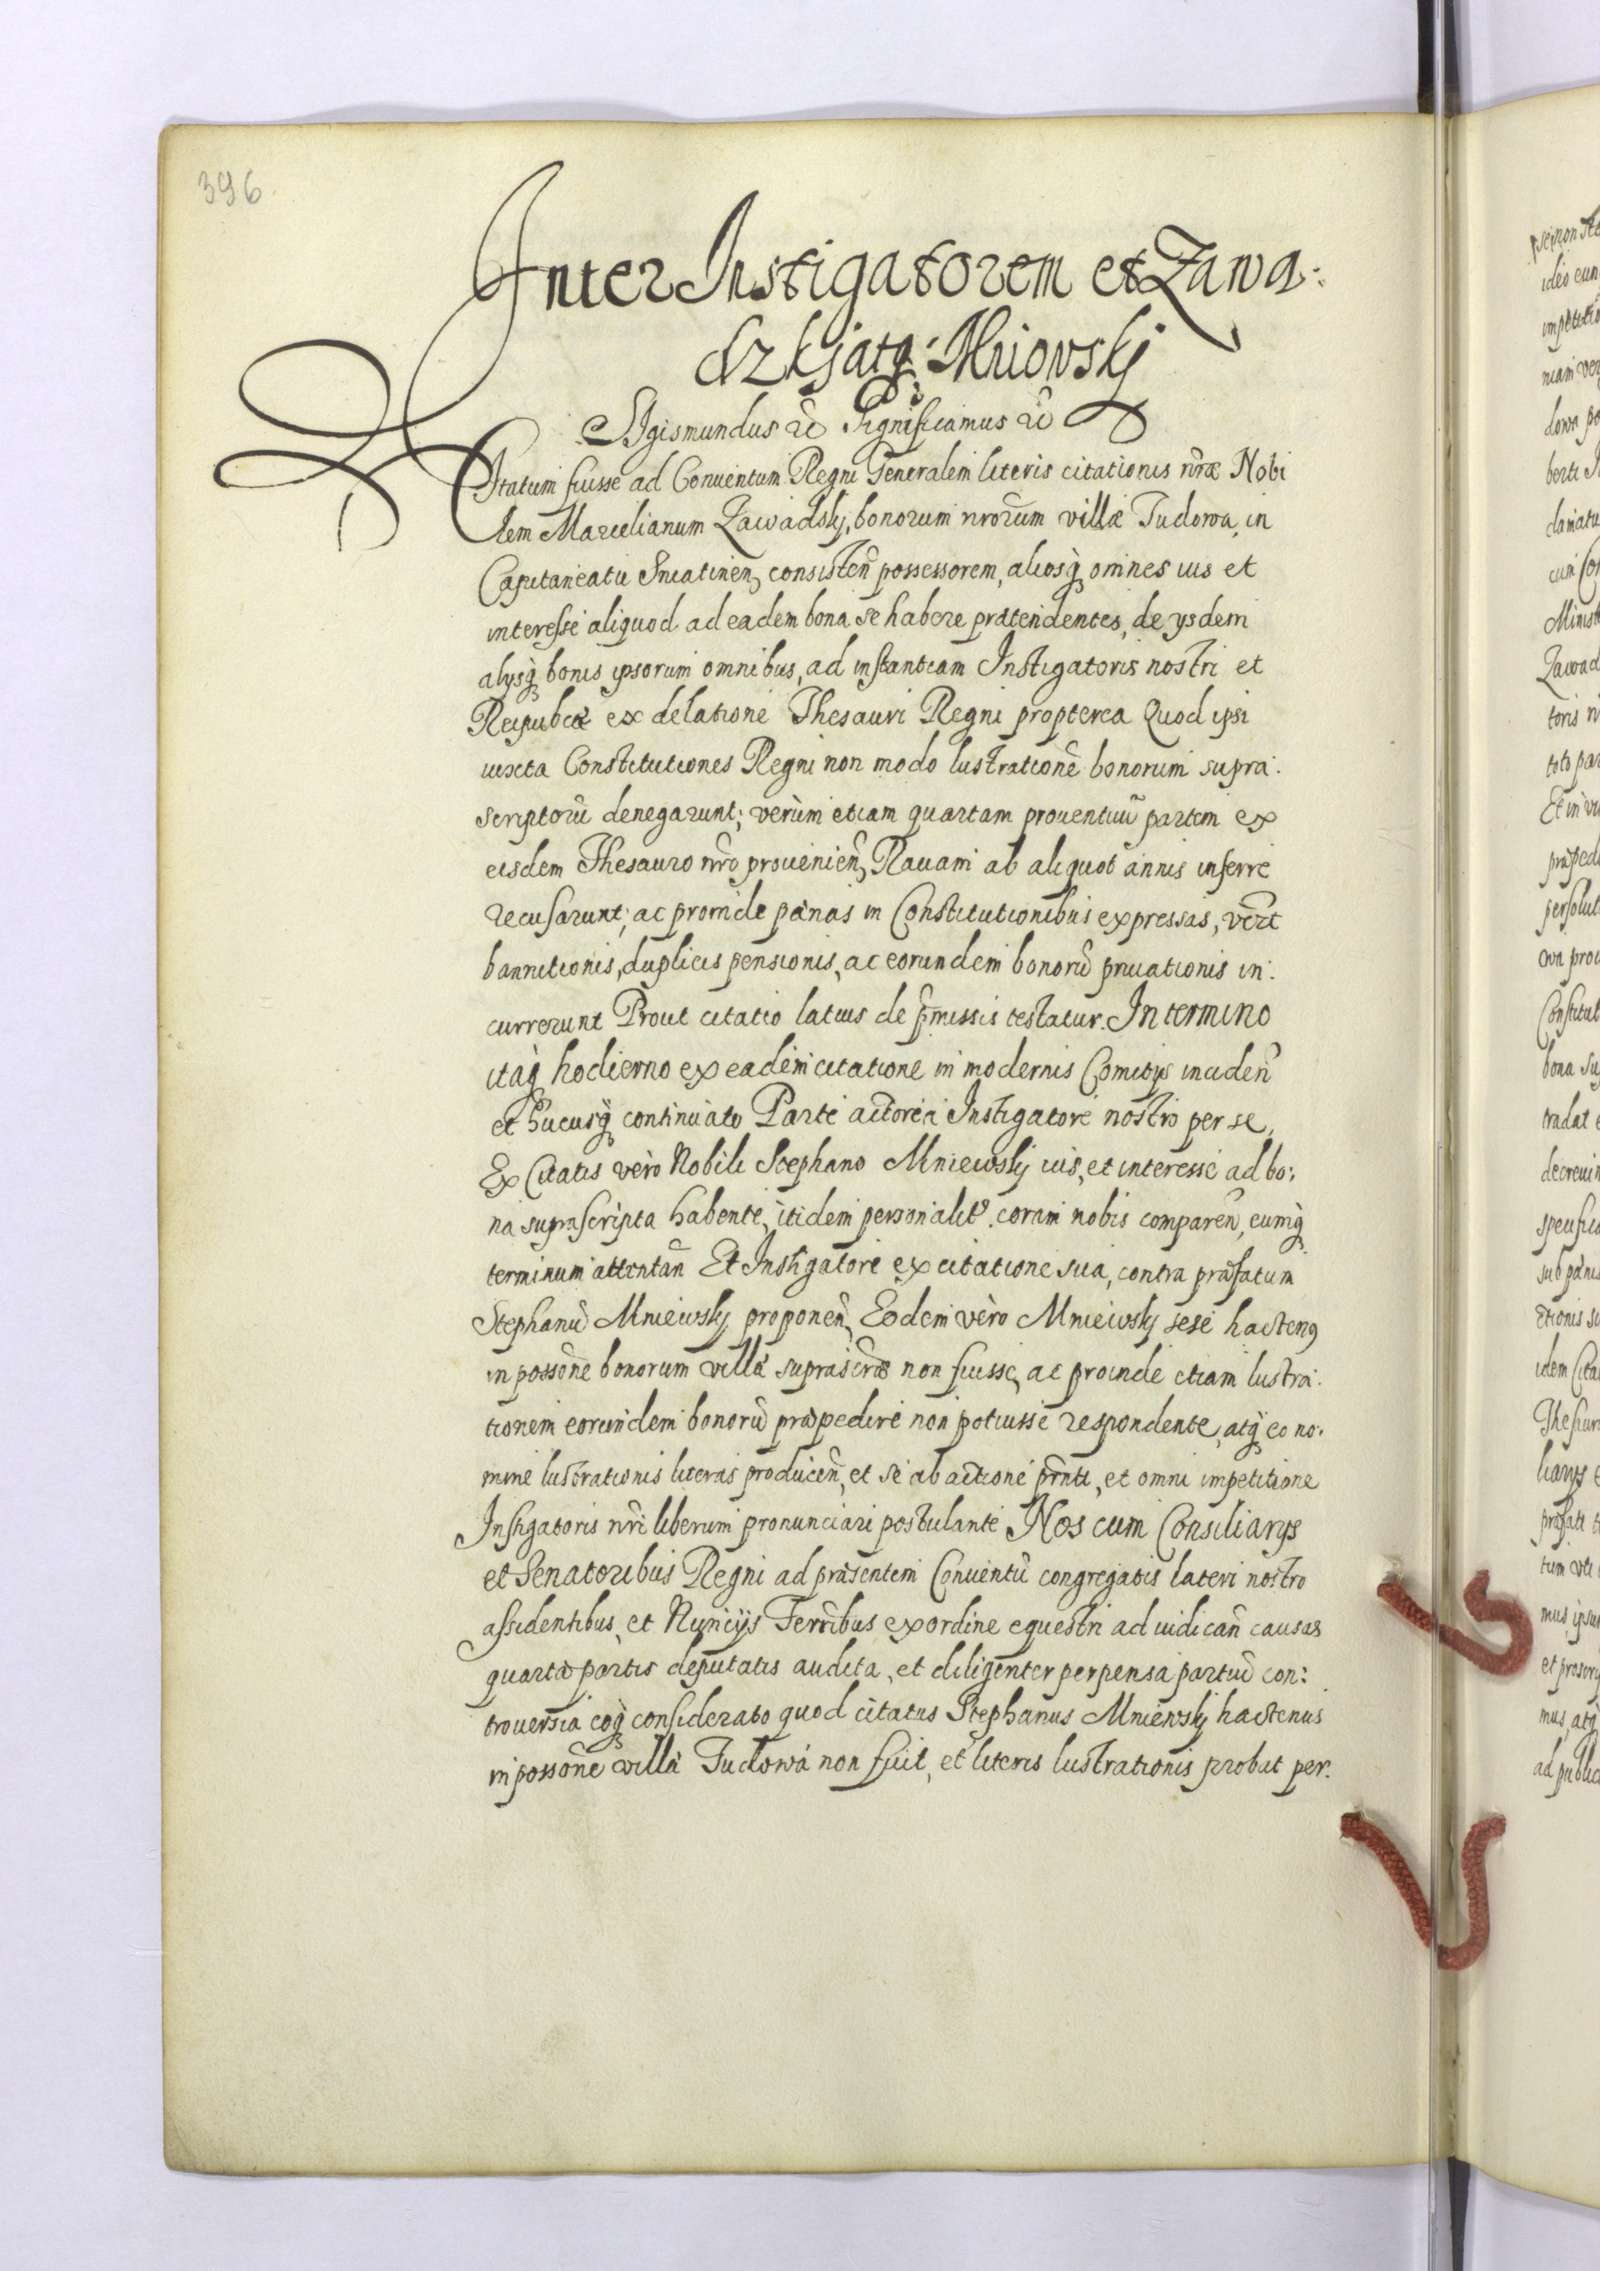 396
Inter Instigatorem et Zawa:
dzkj atq; Mniovskj
Sigismundus etc̃ Significamus etc̃
Citatum fuisse ad Conuentum Regni Generalem literis citationis nr̃æ Nobi
lem Marcelianum Zawadskj, bonorum nrorum villæ Tudowa, in
Capitaneatu Sniatinen̄ consisten̄ possessorem, aliosq; omnes ius et
interesse aliquod ad eadem bona se habere prætendentes, de ysdem
alysq; bonis ipsorum omnibus, ad instantiam Instigatoris nostri et
Reipubcæ ex delatione Thesauri Regni propterea Quod ipsi
iuxta Constitutiones Regni non modo lustrationẽ bonorum supra:
scriptorũ denegarunt; verùm etiam quartam prouentuũ partem ex
eisdem Thesauro nr̃o prouenien̄, Rauam ab aliquot annis inferre
recusarunt; ac proinde pœnas in Constitutionibus expressas, vẽrt
bannitionis, duplicis pensionis, ac eorundem bonorũ priuationis in:
currerunt Prout citatio latius de p̃missis testatur. In termino
itaq; hodierno ex eadem citatione in modernis Comitijs inciden̄
et hucusq; continuato Parte actorea Instigatore nostro per se,
Ex Citatis vèro Nobili Stephano Mniewskj ius, et interesse ad bo:
na suprascripta habente, itidem personalitr̃ coram nobis comparen̄, eumq;
terminum attentan̄ Et Instigatore ex citatione sua, contra præfatum
Stephanũ Mniewskj proponen̄, Eodem vèro Mniewskj sese hactenq
in possõne bonorum villæ suprascr̃æ non fuisse, ac proinde etiam lustra:
tionem eorundem bonorũ præpedire non potuisse respondente, atq; eo no:
mine lustrationis literas producen̄, et se ab actione pr̃nti, et omni impetitione
Instigatoris nr̃i liberum pronunciari postulante Nos cum Consiliarys
et Senatoribus Regni ad præsentem Conuentũ congregatis lateri nostro
assidentibus, et Nuncijs Terr̃ibus ex ordine equestri ad iudican̄ causas
quartæ partis deputatis audita, et diligenter perpensa partiũ con:
trouersia eoq; considerato quod citatus Stephanus Mniewskj hactenus
in possõne villæ Tudowa non fuit, et literis lustrationis probat per: